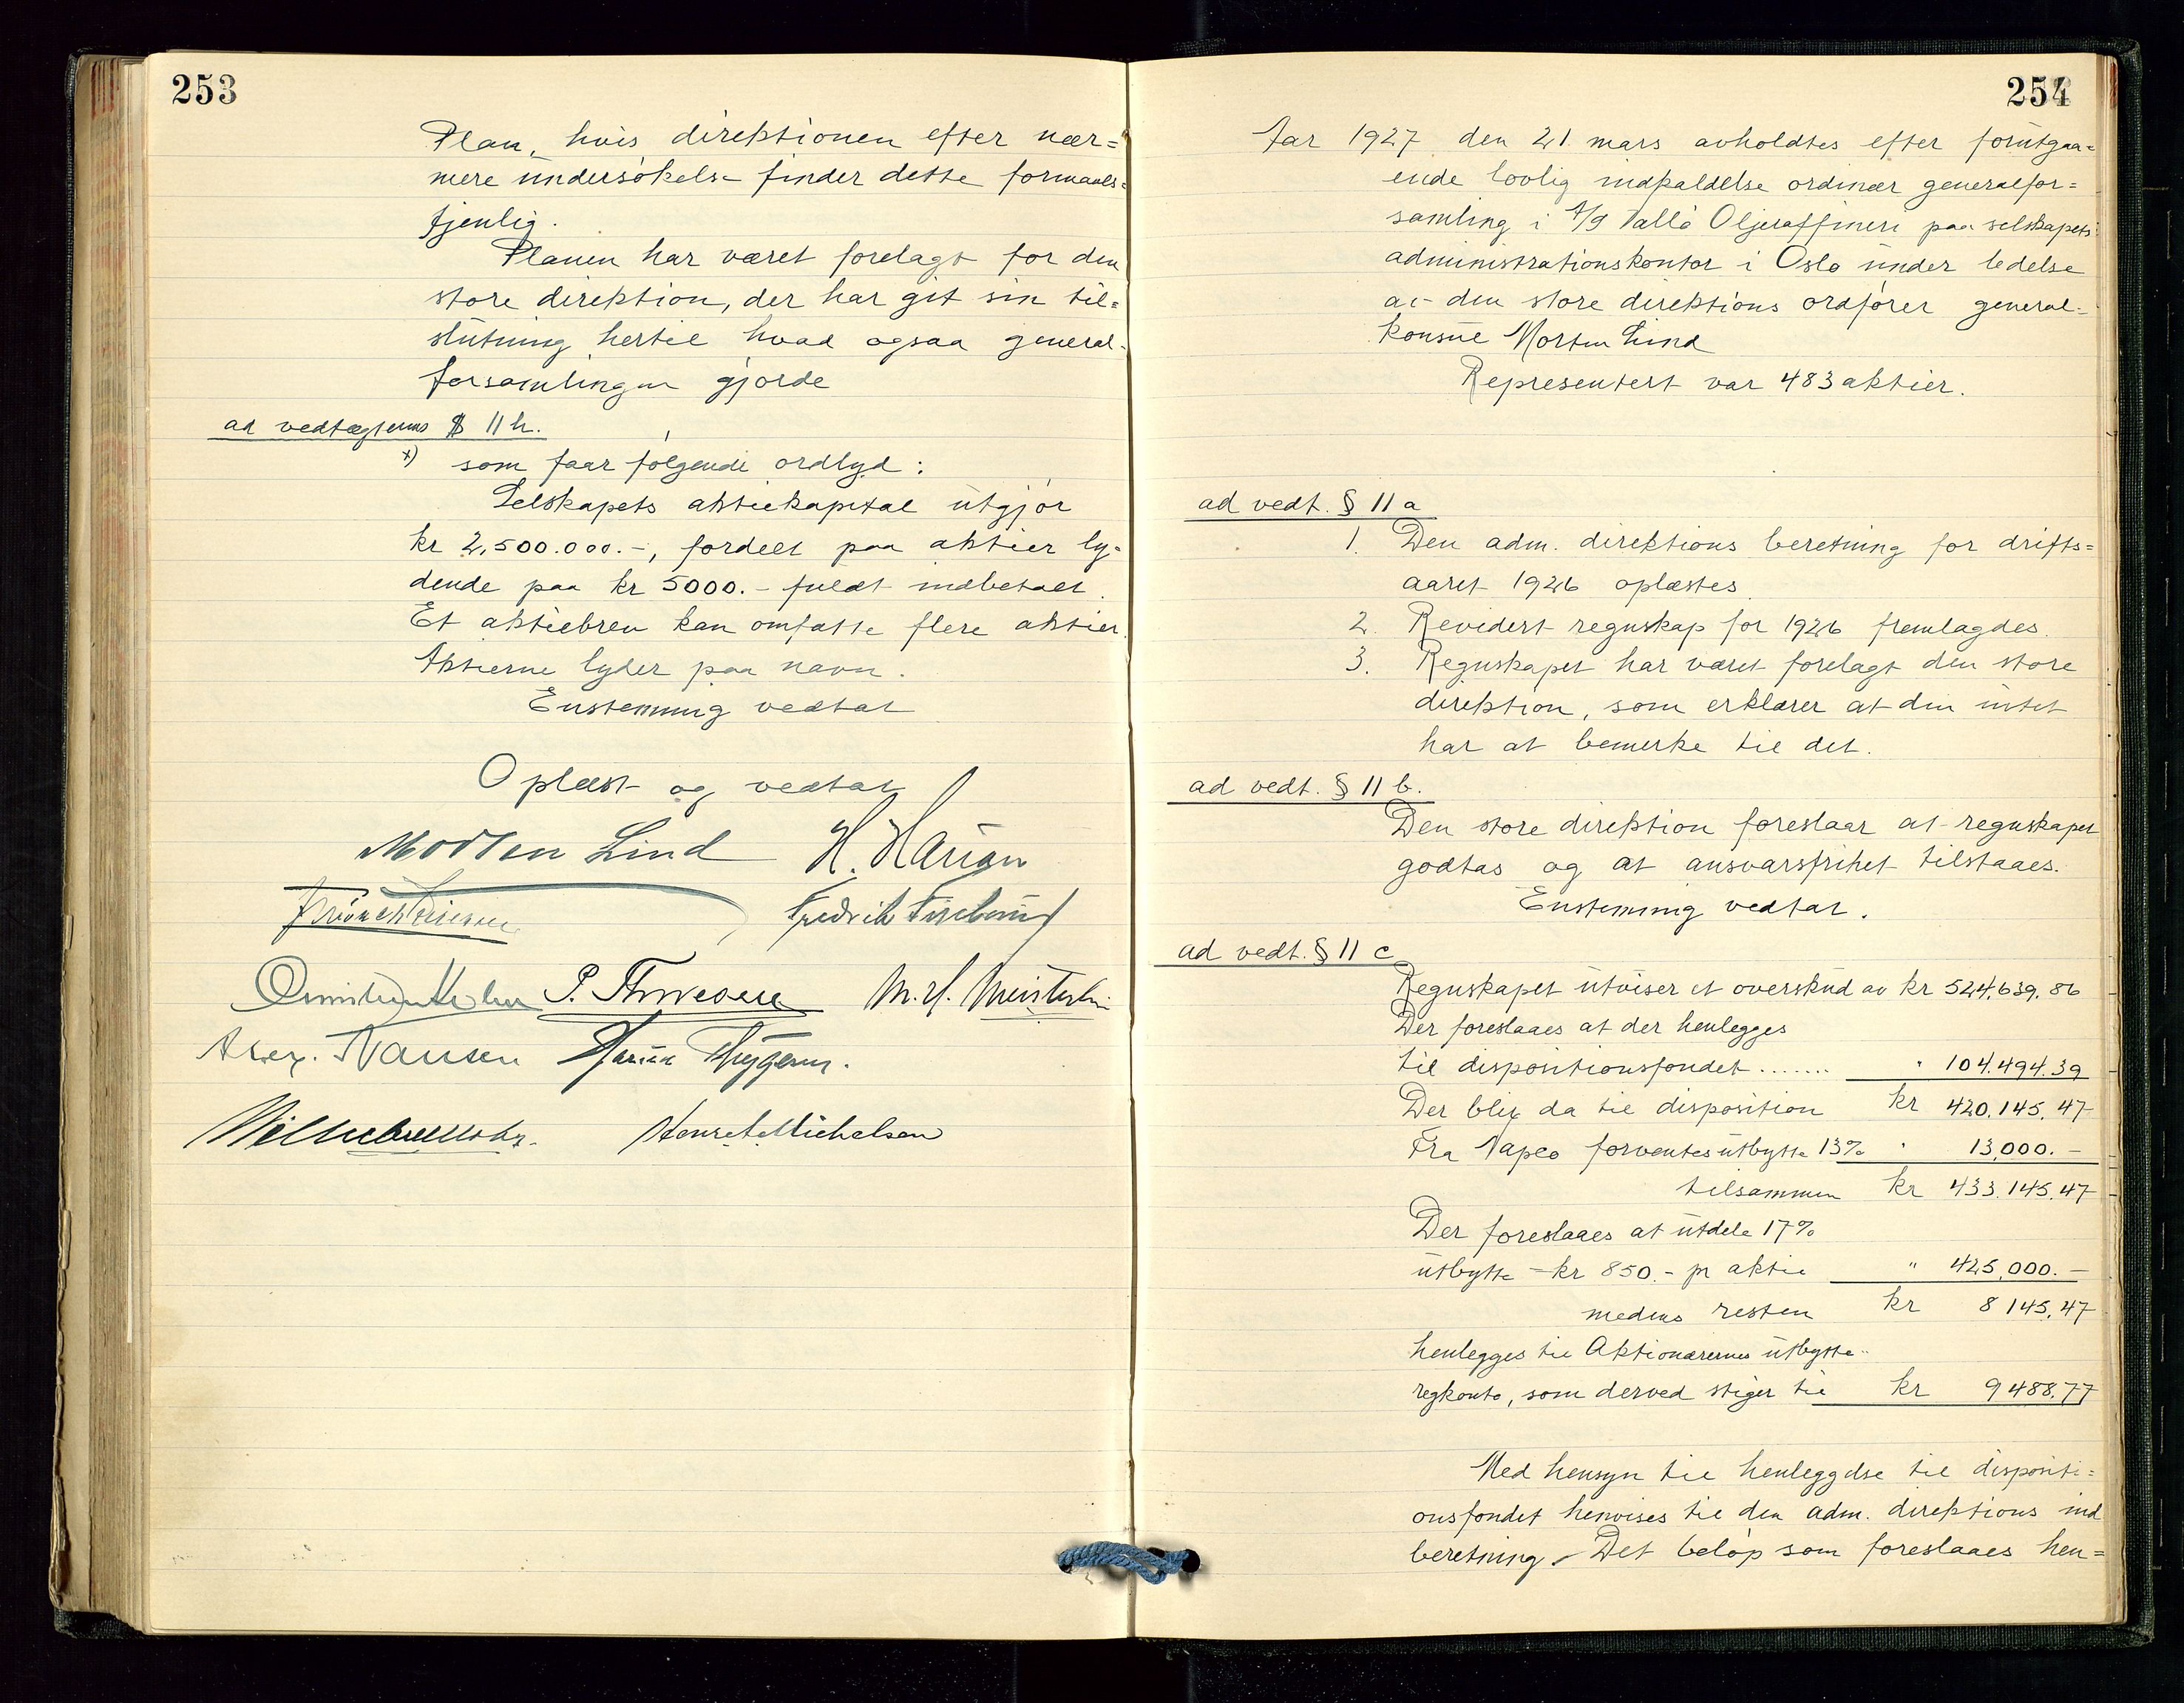 253
Plan, hvis direktionen efter nær=
mere undersökelse finder dette formaals=
tjenlig.
Planen har været forelagt for den
store direktion, der har git sin til=
slutning hertil hvad ogsaa general-
forsamlingen gjorde
ad vedtægternes § 11 h.
x) som faar følgende ordlyd:
Selskapets aktiekapital utgjör
kr 2,500.000.-, fordelt paa aktier ly=
dende paa kr 5000.- fuldt indbetalt.
Et aktiebrev kan omfatte flere aktier.
Aktierne lyder paa navn.
Enstemmig vedtat
Oplæst og vedtat
Morten Lind H.
Fredrik
P.
Nansen
Michelsen
254
Aar 1927 den 21. mars avholdtes efter forutgaa=
ende lovlig indkaldelse ordinær generalfor=
samling i A/S Vallö Oljeraffineri paa selskapets
administrationskontor i Oslo under ledelse
av den store direktions ordförer general-
konsul Morten Lind
Representert var 483 aktier.
ad vedt. § 11 a
1. Den adm. direktions beretning for drifts=
aaret 1926 oplæstes.
2. Revidert regnskap for 1926 fremlagdes.
3. Regnskapet har været forelagt den store
direktion, som erklærer at den intet
har at bemerke til det.
ad vedt. § 11 b.
Den store direktion foreslaar at regnskapet
godtas og at ansvarsfrihet tilstaaes.
Enstemmig vedtat.
ad vedt. § 11 c
Regnskapet utviser et overskud av kr 524,639.86
Der foreslaaes at der henlegges
til dispositionsfondet....... " 104.494.39
Der blir da til disposition kr 420.145.47
Fra Vapco forventes utbytte 13% " 13,000.-
tilsammen kr 433.145.47
Der foreslaaes at utdele 17%
utbytte = kr 850.- pr aktie " 425,000.-
medens resten kr 8 145.47
henlegges til Aktionærernes utbytte-
regkonto, som derved stiger til kr 9 488.77
Med hensyn til henleggelse til dispositi=
onsfondet henvises til den adm. direktions ind
beretning. Det belöp som foreslaaes hen=